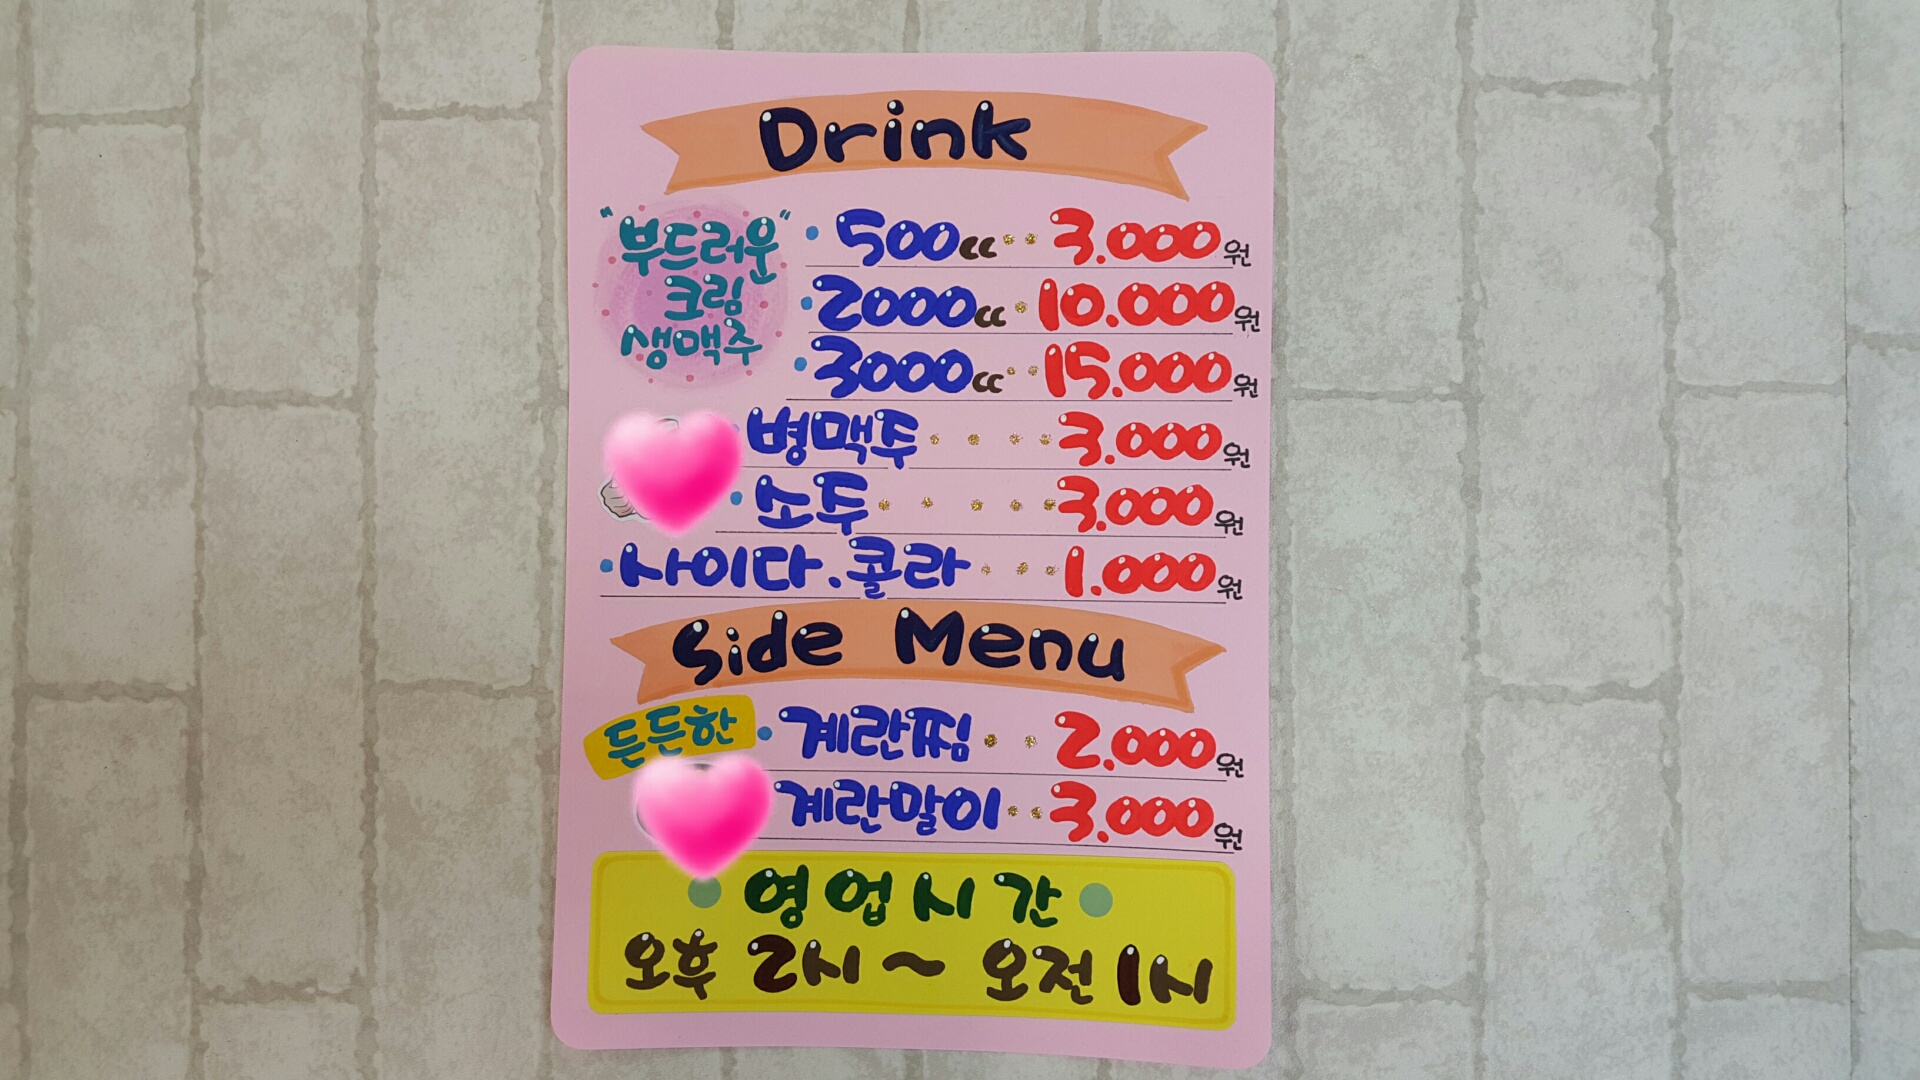 Drink
"부드러운
크림
생맥주"
• 500cc •• 3.000원
• 2000cc • 10.000원
• 3000cc •• 15.000원
병맥주 •••• 3.000원
• 소주 ••••• 3.000원
• 사이다.콜라 ••• 1.000원
Side Menu
든든한 • 계란찜 •• 2.000원
계란말이 •• 3.000원
영업시간
오후 2시 ~ 오전 1시